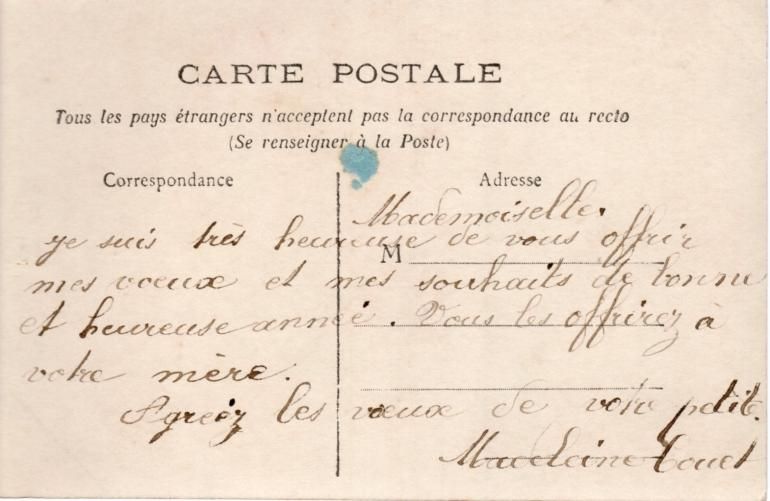 CARTE POSTALE
Tous les pays étrangers n'acceptent pas la correspondance au recto
(Se renseigner à la Poste)
Correspondance
Adresse
Mademoiselle.
M
Je suis très heureuse de vous offrir
mes voeux et mes souhaits de bonne
et heureuse année. Vous les offrirez à
votre mère.
Agreéz les voeux de votre petite.
Madeleine